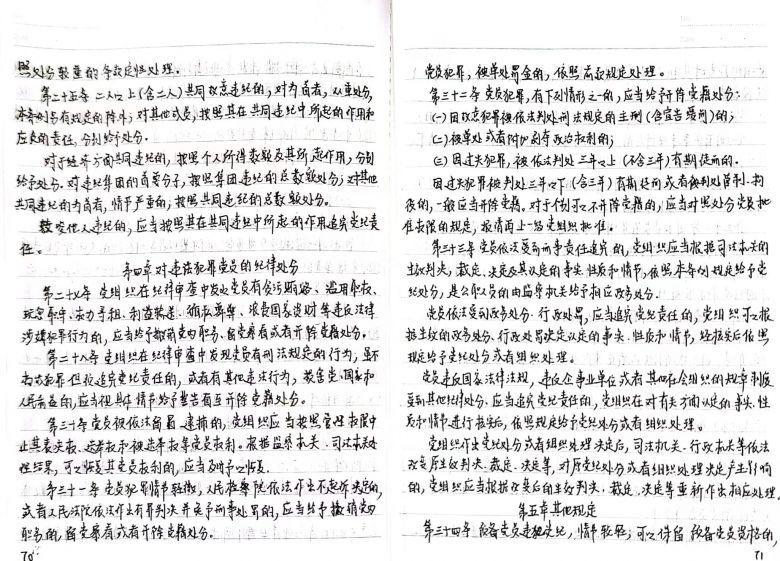 照处分较重的条款定性处理。
第二十五条 二人以上(含二人)共同故意违纪的,对为首者,从重处分,
本条例另有规定的除外;对其他成员,按照其在共同违纪中所起的作用和
应负的责任,分别给予处分。
对于经济方面共同违纪的,按照个人所得数额及其所起作用,分别
给予处分。对违纪集团的首要分子,按照集团违纪的总数额处分;对其他
共同违纪的为首者,情节严重的,按照共同违纪的总数额处分。
教唆他人违纪的,应当按照其在共同违纪中所起的作用追究党纪责
任。
第四章 对违法犯罪党员的纪律处分
第二十七条 党组织在纪律审查中发现党员有贪污贿赂、滥用职权、
玩忽职守、权力寻租、利益输送、徇私舞弊、浪费国家资财等违反法律
涉嫌犯罪行为的,应当给予撤销党内职务、留党察看或者开除党籍处分。
第二十八条 党组织在纪律审查中发现党员有刑法规定的行为,虽不
构成犯罪但须追究党纪责任的,或者有其他违法行为,损害党、国家和
人民利益的,应当视具体情节给予警告直至开除党籍处分。
第三十条 党员被依法留置、逮捕的,党组织应当按照管理权限中
止其表决权、选举权和被选举权等党员权利。根据监察机关、司法机关处
理结果,可以恢复其党员权利的,应当及时予以恢复。
第三十一条 党员犯罪情节轻微,人民检察院依法作出不起诉决定的,
或者人民法院依法作出有罪判决并免予刑事处罚的,应当给予撤销党内
职务的,留党察看或者开除党籍处分。
70
党员犯罪,被单处罚金的,依照前款规定处理。
第三十二条 党员犯罪,有下列情形之一的,应当给予开除党籍处分:
(一)因故意犯罪被依法判处刑法规定的主刑(含宣告缓刑)的;
(二)被单处或者附加剥夺政治权利的;
(三)因过失犯罪,被依法判处三年以上(不含三年)有期徒刑的。
因过失犯罪被判处三年以下(含三年)有期徒刑或者被判处管制、拘
役的,一般应当开除党籍。对于个别可以不开除党籍的,应当对照处分党员批
准权限的规定,报请再上一级党组织批准。
第三十三条 党员依法受到刑事责任追究的,党组织应当根据司法机关的
生效判决、裁定、决定及其认定的事实、性质和情节,依照本条例规定给予党
纪处分,是公职人员的由监察机关给予相应政务处分。
党员依法受到政务处分、行政处罚,应当追究党纪责任的,党组织可以根
据生效的政务处分、行政处罚决定认定的事实、性质和情节,经核实后依照
规定给予党纪处分或者组织处理。
党员违反国家法律法规,违反企事业单位或者其他社会组织的规章制度
受到其他纪律处分,应当追究党纪责任的,党组织在对有关方面认定的事实、性
质和情节进行核实后,依照规定给予党纪处分或者组织处理。
党组织作出党纪处分或者组织处理决定后,司法机关、行政机关等依法
改变原生效判决、裁定、决定等,对原党纪处分或者组织处理决定产生影响
的,党组织应当根据改变后的生效判决、裁定、决定等重新作出相应处理。
第五章 其他规定
第三十四条 预备党员违犯党纪,情节较轻;可以保留预备党员资格的,
71